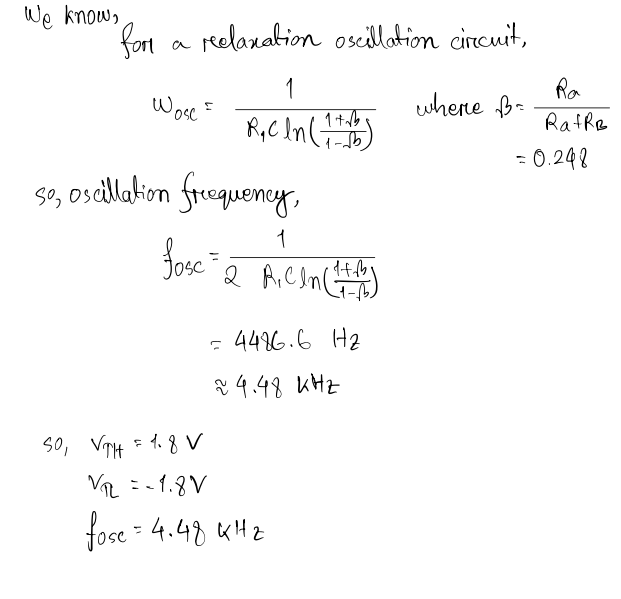 We know,
for a reelaxation oscillation circuit,
Wosc = 1 / R₁C ln(1+β / 1-β) where β = Ra / Ra+RB
= 0.248
so, oscillation frequency,
fosc = 1 / 2 R₁C ln(1+β / 1-β)
= 4486.6 Hz
≈ 4.48 KHz
so, VTH = 1.8 V
VTL = -1.8V
fosc = 4.48 KHz